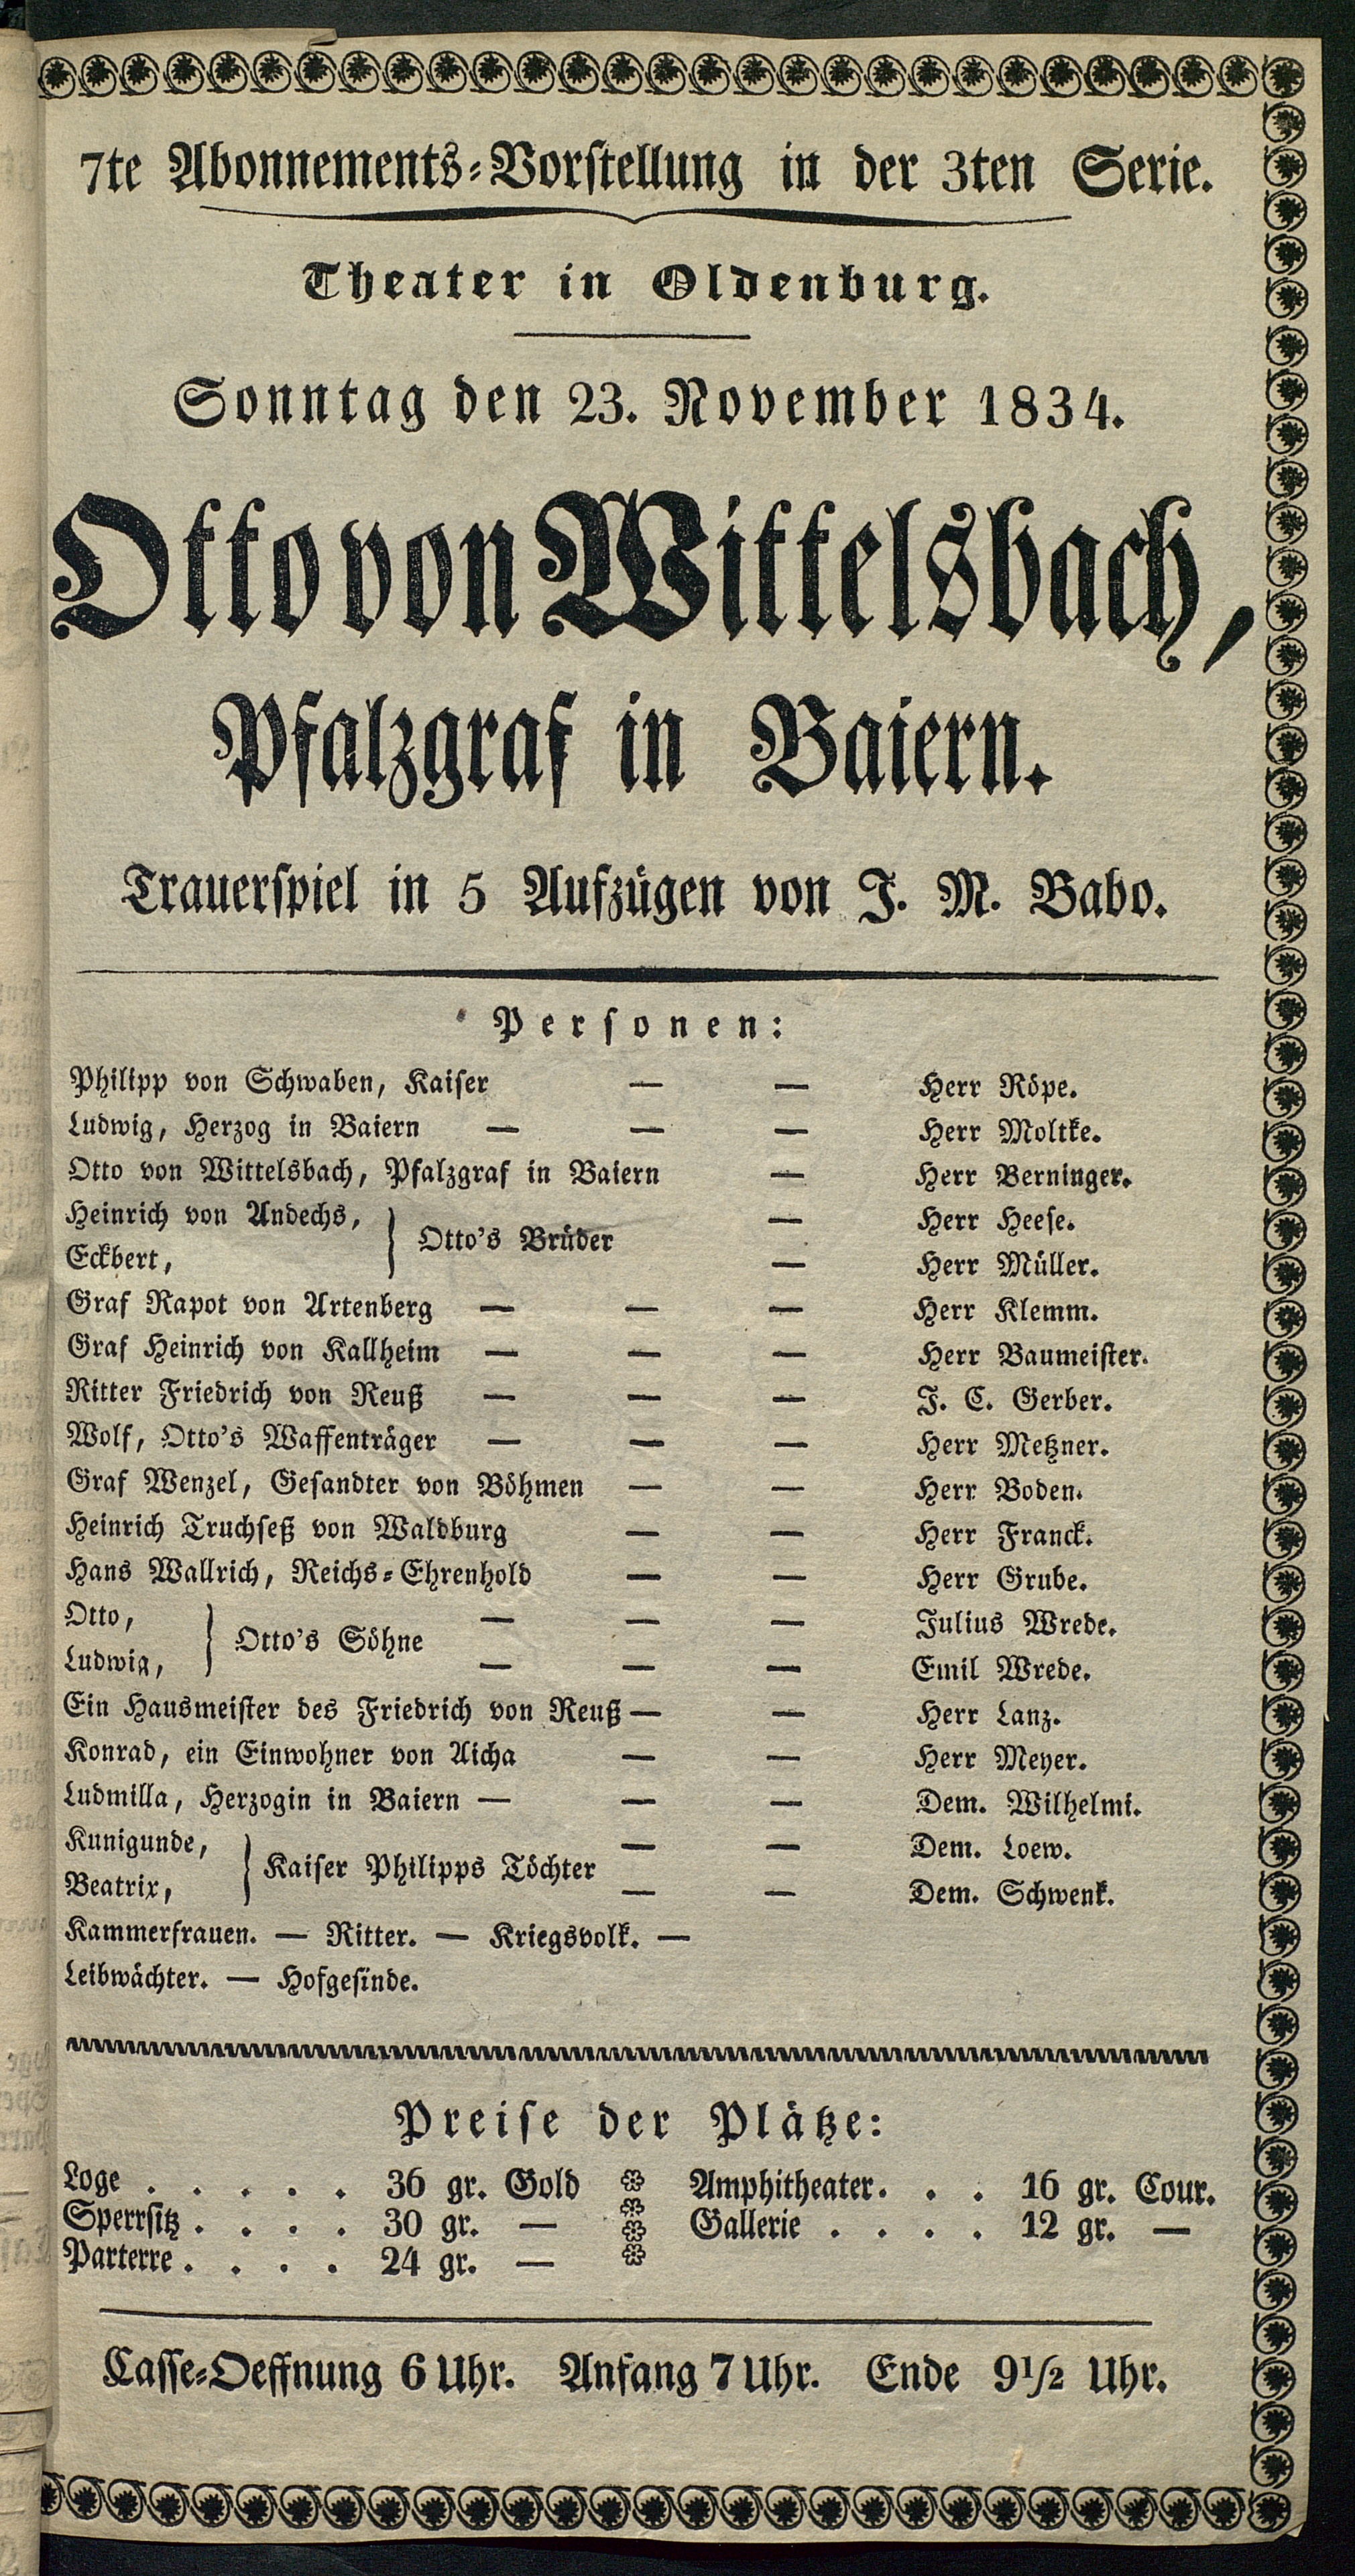 7te Abonnements-Vorstellung in der 3ten Serie.
Theater in Oldenburg.
Sonntag den 23. November 1834.
Otto von Wittelsbach,
Pfalzgraf in Baiern.
Trauerspiel in 5 Aufzügen von J. M. Babo.
Personen:
Philipp von Schwaben, Kaiser — — Herr Röpe.
Ludwig, Herzog in Baiern — — — Herr Moltke.
Otto von Wittelsbach, Pfalzgraf in Baiern — Herr Berninger.
Heinrich von Andechs, } Otto's Brüder — Herr Heese.
Eckbert, — Herr Müller.
Graf Rapot von Artenberg — — — Herr Klemm.
Graf Heinrich von Kallheim — — — Herr Baumeister.
Ritter Friedrich von Reuß — — — J. C. Gerber.
Wolf, Otto's Waffenträger — — — Herr Metzner.
Graf Wenzel, Gesandter von Böhmen — — Herr Boden.
Heinrich Truchseß von Waldburg — — Herr Franck.
Hans Wallrich, Reichs-Ehrenhold — — Herr Grube.
Otto, } Otto's Söhne — — — Julius Wrede.
Ludwig, — — — Emil Wrede.
Ein Hausmeister des Friedrich von Reuß — — Herr Lanz.
Konrad, ein Einwohner von Aicha — — Herr Meyer.
Ludmilla, Herzogin in Baiern — — — Dem. Wilhelmi.
Kunigunde, } Kaiser Philipps Töchter — — Dem. Loew.
Beatrix, — — Dem. Schwenk.
Kammerfrauen. — Ritter. — Kriegsvolk. —
Leibwächter. — Hofgesinde.
Preise der Plätze:
Loge . . . . . 36 gr. Gold Amphitheater. . . 16 gr. Cour.
Sperrsitz . . . . 30 gr. — Gallerie . . . . 12 gr. —
Parterre . . . . 24 gr. —
Casse-Oeffnung 6 Uhr. Anfang 7 Uhr. Ende 9½ Uhr.